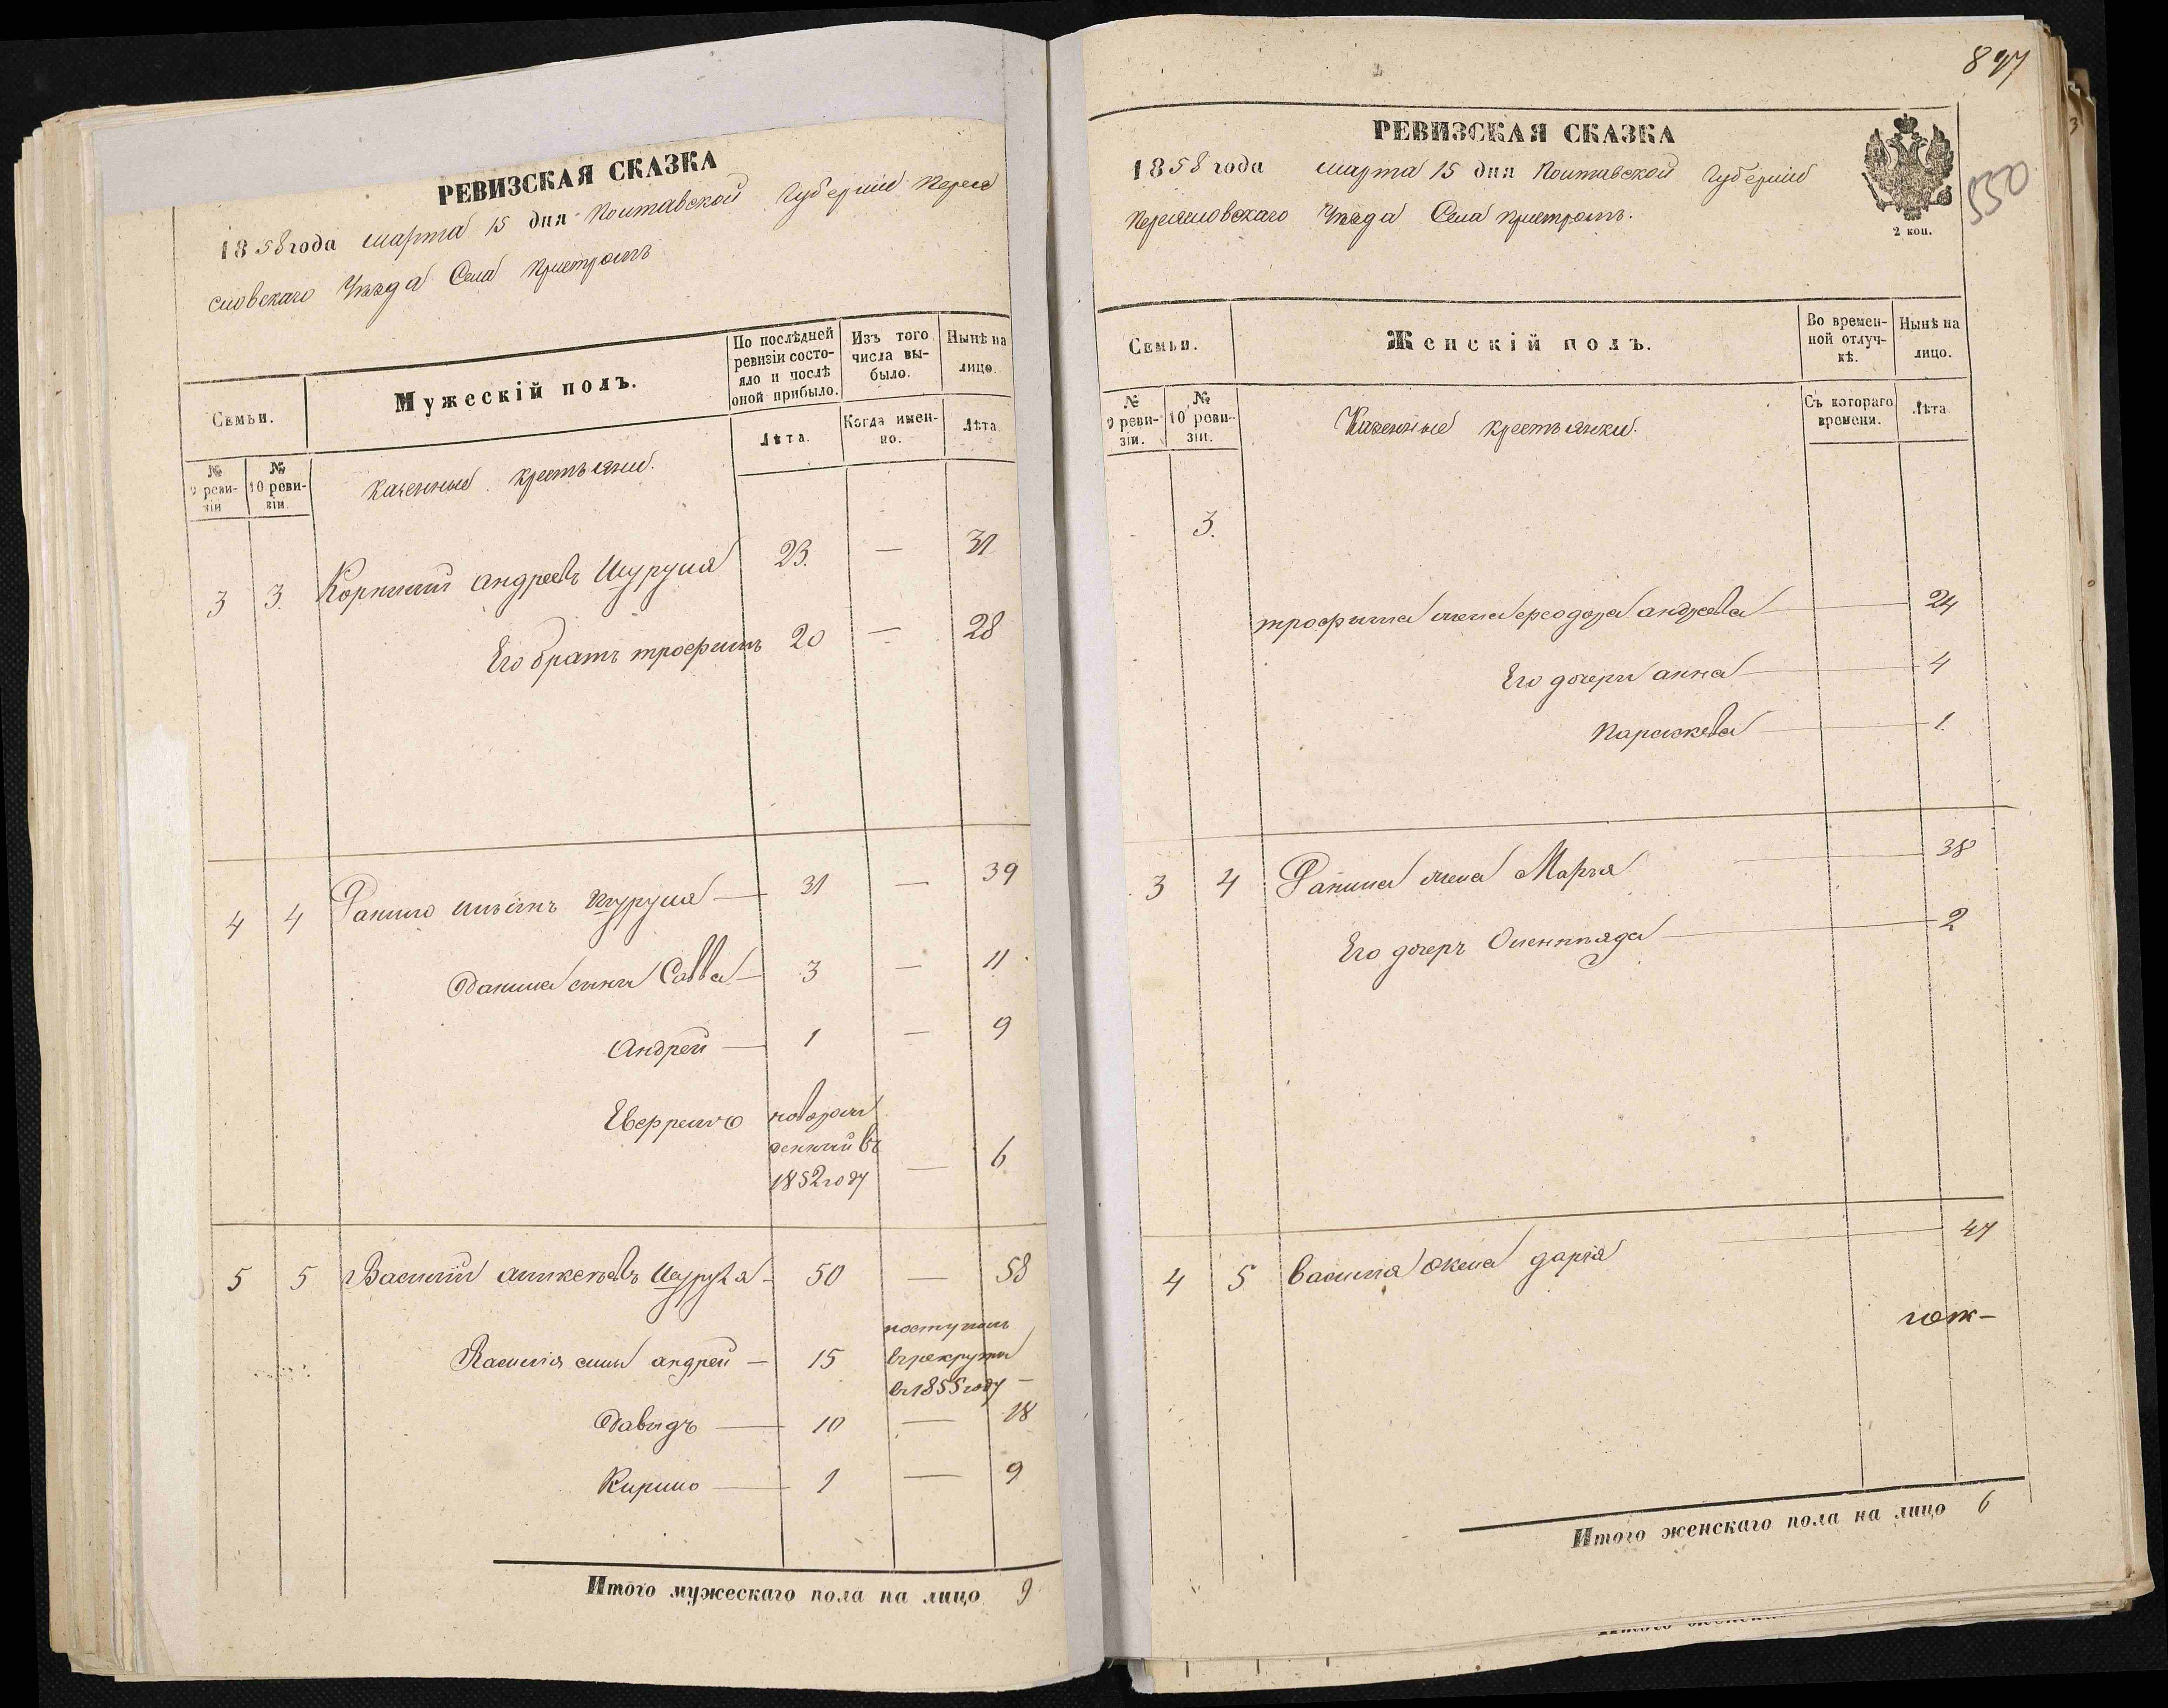 РЕВИЗСКАЯ СКАЗКА
1858 года марта 15 дня Полтавской Губернии Перея
словскаго Уѣзда Села Пристромъ
Семьи.
Мужескій полъ.
По послѣдней ревизіи состояло и послѣ оной прибыло.
Изъ того числа выбыло.
Нынѣ на лицо.
№ 9 ревизіи
№ 10 ревизіи.
казенные крестьяни.
Лѣта.
Когда именно.
Лѣта
3 3. Корнилій андреевъ Шуруля 23. — 31
Его братъ трофимъ 20 — 28
4 4 Данило Шуруля — 31 — 39
Данила сыны Савва — 3 — 11
Андрей — 1 — 9
новорож
денный въ
1852 году — 6
5 5 Василий Шуруля — 50 — 58
Василія сыны андрей — 15 поступилъ
в рекруты
в 1855 году —
Давыдъ — 10 — 18
Кирило — 1 — 9
Итого мужескаго пола на лицо 9
897
550
РЕВИЗСКАЯ СКАЗКА
1858 года марта 15 дня Полтавской Губернии
Переясловскаго Уѣзда Села Пристромъ.
2 коп.
Семьи.
Женскій полъ.
Во временной отлучкѣ.
Нынѣ на лицо.
№ 9 ревизіи.
№ 10 ревизіи.
Казенные крестьянки.
Съ котораго времени.
Лѣта
3.
трофима жена феодора андреева — 24
Его дочери анна — 4
Параскева — 1.
3 4 Данила жена Марья — 38
Его дочерь — 2
4 5 василия жена дария — 47
Итого женскаго пола на лицо 6